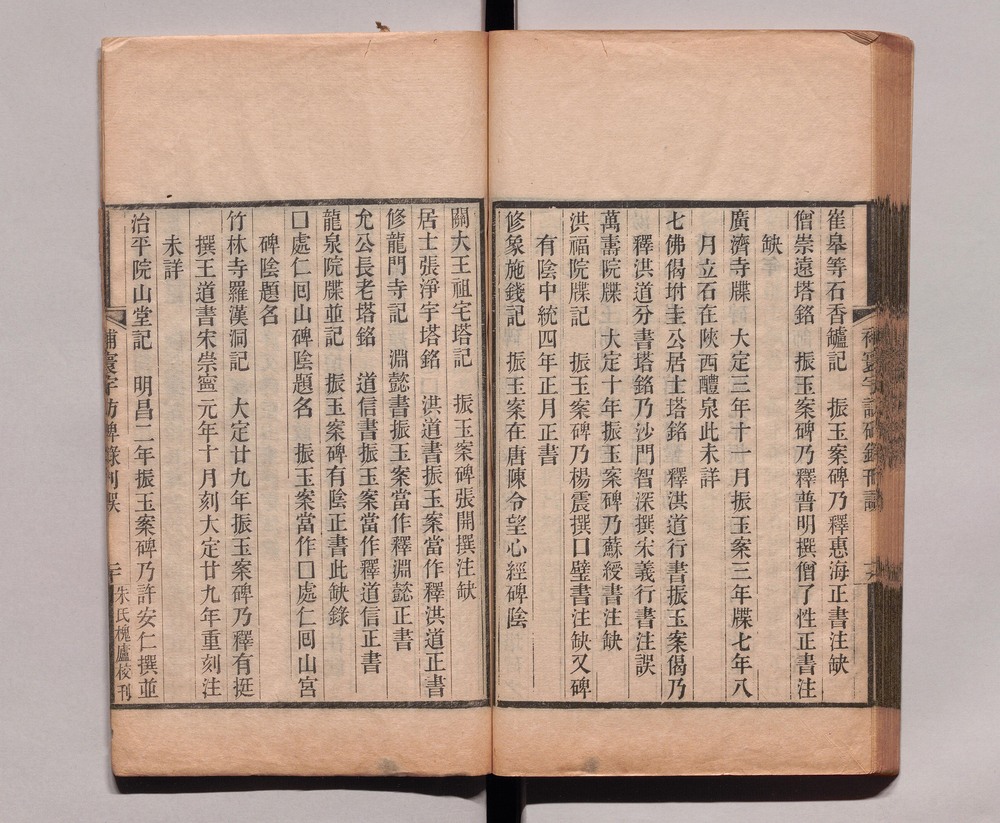 崔皋等石香鑪記　振玉案碑乃釋惠海正書注缺
僧崇遠塔銘　振玉案碑乃釋普明撰僧了性正書注
缺
廣濟寺牒　大定三年十一月振玉案三年牒七年八
月立石在陝西醴泉此未詳
七佛偈坿圭公居士塔銘　釋洪道行書振玉案偈乃
釋洪道分書塔銘乃沙門智深撰宋義行書注誤
萬壽院牒　大定十年振玉案碑乃蘇綬書注缺
洪福院牒記　振玉案碑乃楊震撰口璧書注缺又碑
有陰中統四年正月正書
修象施錢記　振玉案在唐陳令望心經碑陰
關大王祖宅塔記　振玉案碑張開撰注缺
居士張淨宇塔銘　洪道書振玉案當作釋洪道正書
修龍門寺記　淵懿書振玉案當作釋淵懿正書
允公長老塔銘　道信書振玉案當作釋道信正書
龍泉院牒並記　振玉案碑有陰正書此缺錄
口處仁囘山碑陰題名　振玉案當作口處仁囘山宮
碑陰題名
竹林寺羅漢洞記　大定廿九年振玉案碑乃釋有挺
撰王道書宋崇寧元年十月刻大定廿九年重刻注
未詳
治平院山堂記　明昌二年振玉案碑乃許安仁撰並
補寰宇訪碑錄刊誤
二十
朱氏槐廬校刊